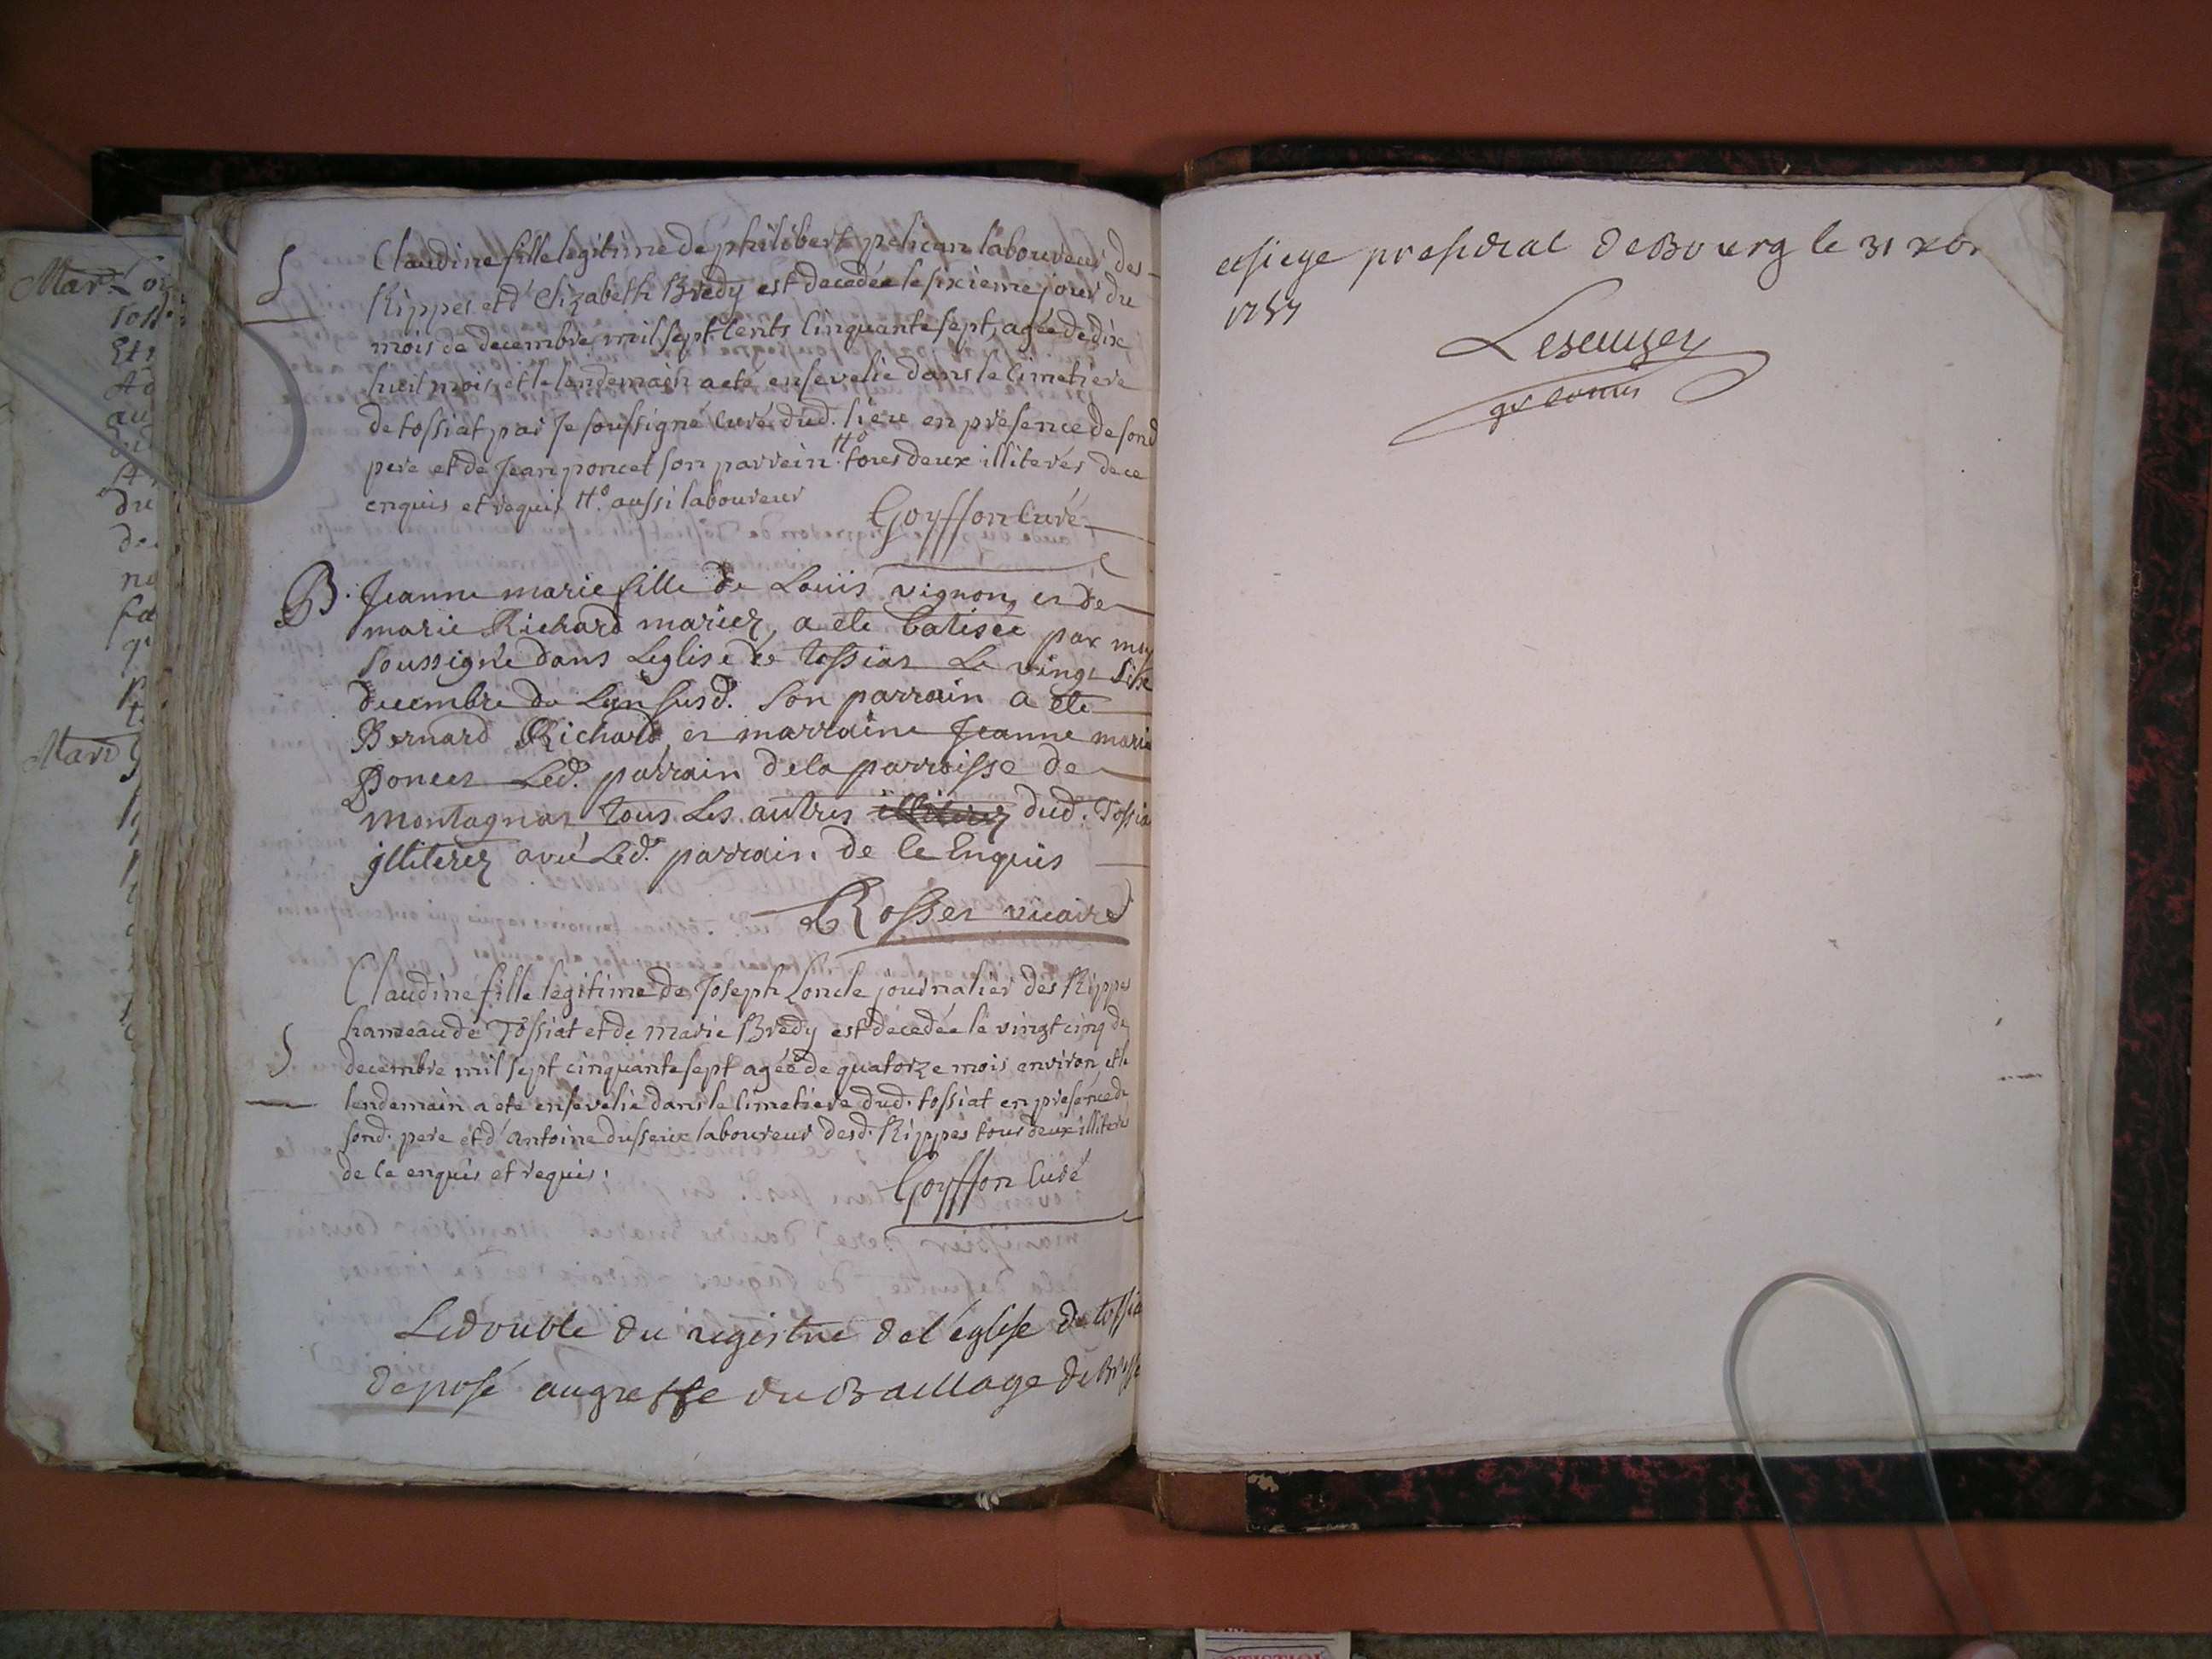 S
Claudine fille legitime de philibert pelican laboureur des
Rippes et d'Elizabeth Bredy est decedée le sixieme jour du
mois de decembre mil sept cents cinquante sept, agée de dix
huit mois, et le lendemain a eté ensevelie dans le cimetiere
de tossiat par Je soussigné curé dud. lieu en presence de sond
pere et de Jean poncet son parrein #° tous deux illiterés de ce
enquis et requis #° aussi laboureur
Goyffon Curé
B. Jeanne marie fille de Louis vignon, et de
marie Richard mariez, a eté batisée par moy
soussigné dans Leglise de Tossiat Le vingt Sixe
decembre de Lan susd. Son parrain a eté
Bernard Richard et marraine Jeanne marie
Poncet Led. parrain de la parroisse de
montagnat tous Les autres illiterez dud. Tossia
jlliterez avec Led. parrain de Ce Enquis
Rosset vicaire
S
Claudine fille legitime de Joseph Loncle journalier des Rippes
hameau de Tossiat et de marie Bredy est decedée le vingt cinq de
decembre mil sept cinquante sept agée de quatorze mois environ, et le
lendemain a eté ensevelie dans le cimetiere dud. tossiat en presence de
sond. pere et d'antoine dusseux laboureur desd. Rippes tous deux illiterés
de ce enquis et requis.
Goyffon Curé
Le double du registre de l'église de tossia
deposé au greffe du Baillage de Bresse
et siege presidial de Bourg le 31 xbr
1757
Mar.
Mari